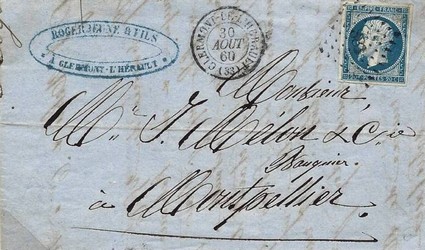 ROGER JEUNE & FILS
A CLERMONT-L'HÉRAULT
CLERMONT-L'HÉRAULT
30
AOUT
60
(33)
EMPIRE FRANC
Monsieur,
Mr. J. Mélon & Cie
Banquier
à Montpellier